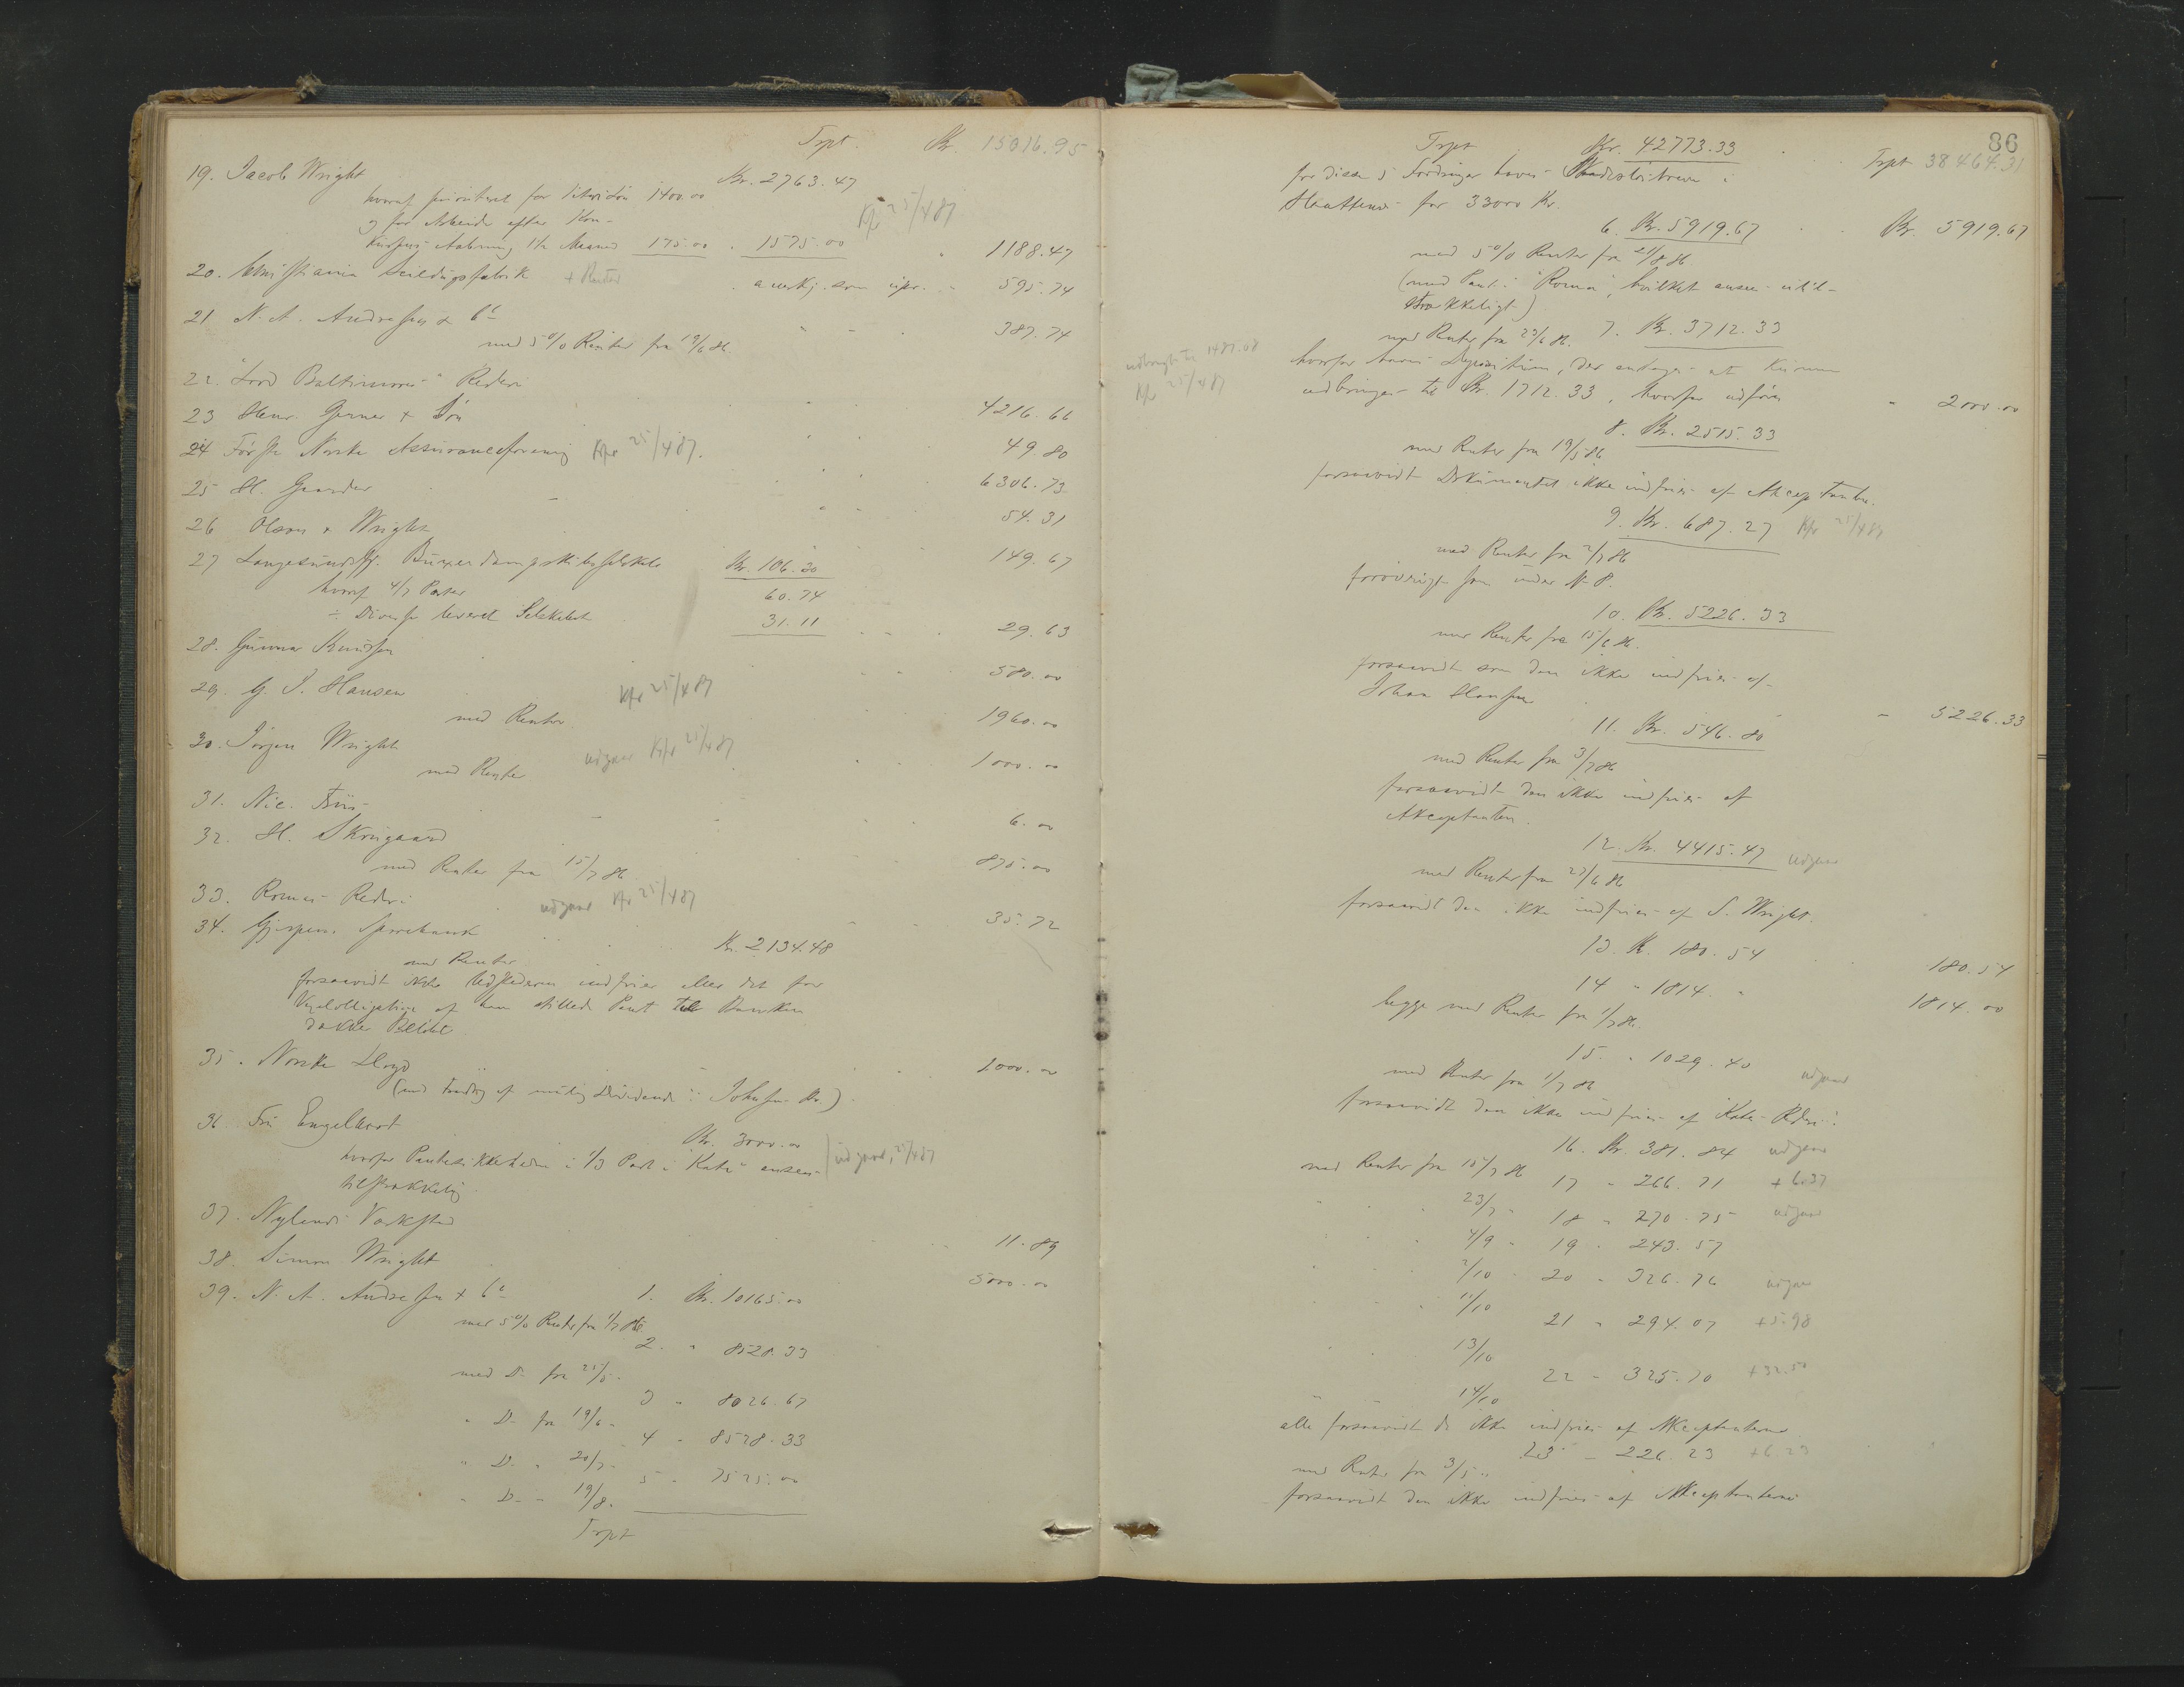 Trpt. Kr. 15016.95
19. Jacob Wright Kr. 2763.47
hvoraf prioriteret for 1400.00
og for Arbeide efter Kon-
kursens Aabning 1½ Maaned 175.00 " 1575.00 Kfr 25/4 87 " 1188.47
20. Christiania Seildugsfabrik + Renter anerkj. som upr. " 595.74
21 N. A. Andresen & Co
med 5% Renter fra 19/6 86. 387.74
22. "Lord Baltimores" Rederi
23 Henr. Gerner & Søn 4216.66
24 Første Norske Assuranceforening Kfr 25/4 87. 49 80
25 H. Gaarder 6306.73
26 Olsen & Wright 54.31
27 Langesunds Buxerdampskibsselskab Kr. 106.30 149.67
hvoraf 4/7 Parter 60.74
÷ Diverse leveret Selskabet 31.11 29.63
28. Gunnar Knudsen 580.00
29. G. J. Hansen Kfr 25/4 87
med Renter 1960.00
30. Jørgen Wright udgaar Kfr 25/4 87
med Renter 1000.00
31. Nic. Friis 6.00
32. H. Skrugaard
med Renter fra 15/7 86 875.00
33. Romas Rederi udgaar Kfr 25/4 87 35.72
34. Gjerpens Sparebank Kr. 2134.48
med Renter
forsaavidt ikke Udstederen indfrier eller det for
Vexelobligation af ham stillede Pant til Banken
dækker Beløbet
35. Norske Lloyd 2000.00
(med Fradrag af mulig Dividende i Johnsens Bo.)
36 Frk Engelhart Kr. 3000.00
hvorfor Pantesikkerheden i 1/3 Part i "Kate" ansees udgaar, 25/4 87
tilstrækkelig
37. Nylands Værksted 11.89
38. Simon Wright 5000.00
39. N. A. Andresen & Co 1. Kr. 10165.00
med 5% Renter fra 1/7 86
2. " 8528.33
med Do fra 25/5 "
3 " 8026.67
" Do fra 19/6 "
4 " 8528.33
" Do " 20/7 "
5 " 7525.00
" Do " 19/8 "
Trpt
86
Trpt Kr. 42773.33 Trpt 38464.31
for disse 5 Fordringer haves Skadesløsbreve i
for 33000 Kr.
6. Kr. 5919.67 Kr. 5919.67
med 5% Renter fra 21/8 86
(med Pant i "Roma", hvilket ansees util-
strækkeligt)
7. Kr. 3712.33
med Renter fra 23/6 86.
udbragt til 1487.08
Kfr 25/4 87
hvorfor haves Depositum, der antages at kunne
udbringes til Kr. 1712.33, hvorfor udføres " 2000.00
8. Kr. 2515.33
med Renter fra 19/5 86
forsaavidt Dokumentet ikke indfries af Akceptanten.
9. Kr. 687.27 Kfr 25/4 87
med Renter fra 2/7 86
forøvrigt som under No 8.
10. Kr. 5226.33
med Renter fra 15/6 86.
forsaavidt som den ikke indfries af
Johan Hansen " 5226.33
11. Kr. 546.80
med Renter fra 3/7 86
forsaavidt den ikke indfries af
Akceptanten.
12. Kr. 4415.47 udgaar
med Renter fra 23/6 86
forsaavidt den ikke indfries af S. Wright.
13. Kr. 180.54 180.54
14 " 1814. " 1814.00
begge med Renter fra 1/7 86.
15. " 1029.40 udgaar
med Renter fra 1/7 86
forsaavidt den ikke indfries af Kates Rederi
16. Kr. 381.84 udgaar
med Renter fra 15/7 86 17 " 266.71 + 6.37
23/7 " 18 " 270.75 udgaar
4/9 " 19 " 243.57
2/10 " 20 " 326.76 udgaar
11/10 21 " 294.07 + 5.98
13/10 22 " 325.70 + 32.50
14/10
alle forsaavidt de ikke indfries af Akceptanterne
23 " 226.23 + 6.23
med Renter fra 3/5 "
forsaavidt den ikke indfries af Akceptanterne